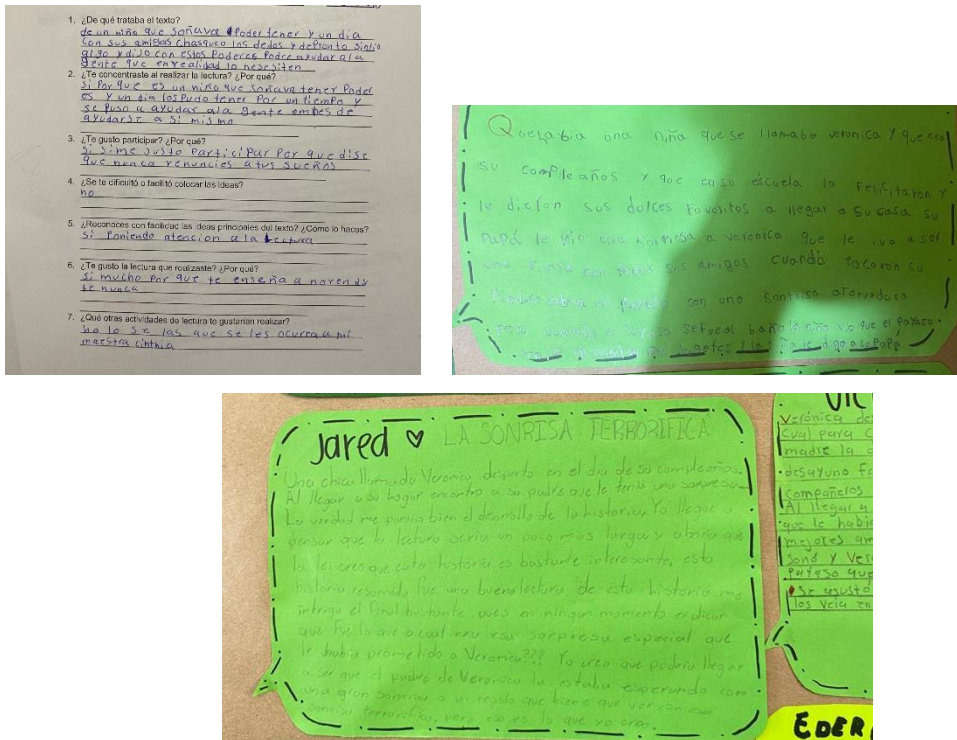 1. ¿De qué trataba el texto?
de un niño que soñava Poder tener y un dia
con sus amigas chasqueo los dedos y depronto sintio
algo y dijo con estos Poderes Podre ayudar a la
gente que enrealidad lo nesesiten
2. ¿Te concentraste al realizar la lectura? ¿Por qué?
Si Por que es un niño que soñava tener Poder
es y un dia los Pudo tener Por un tiempo y
se Puso a ayudar ala gente embes de
ayudarse a si mismo
3. ¿Te gusto participar? ¿Por qué?
Si Sime justo Participar Por que dise
que nunca renuncies a tus sueños
4. ¿Se te dificultó o facilitó colocar las ideas?
no
5. ¿Reconoces con facilidad las ideas principales del texto? ¿Cómo lo haces?
Si Poniendo atencion a la lectura
6. ¿Te gusto la lectura que realizaste? ¿Por qué?
Si mucho Por que te enseña a
te nunca
7. ¿Qué otras actividades de lectura te gustarían realizar?
no lo se las que se les ocurra a mi
maestra cinthia
una niña que se llamaba veronica y que era
su compleaños y que en su escuela la Felicitaron y
le dieron sus dolces Favoritos a llegar a su casa su
Papá le dijo una sorpresa a veronica que le iva a ser
con sus amigos cuando tocaron su
con una sonrisa aterradora
se fue al baño la niña vio que el Payaso
Jared ♡ LA SONRISA TERRORIFICA
Una chica llamada Veronica desperto en el dia de su cumpleaños.
Al llegar a su hogar encontro a su padre que le tenia una sorpresa.
La verdad me parecio bien el desarrollo de la historia. Yo llegue a
pensar que la lectura seria un poco mas larga y ahora que
la lei creo que esta historia es bastante interesante, esta
historia resumida fue una buena lectura, de esta historia me
intriga el final bastante, pues en ningun momento explican
que fue lo que o cual era esa sorpresa especial que
le habia prometido a Veronica??? Yo creo que podria llegar
a ser que el padre de Veronica la estaba esperando con
una gran sonrisa o un regalo que tiene que ver con esa
sonrisa terrorifica, pero eso es lo que yo creo.
VIC
Verónica de
cual para c
madre la
desayuno
Compañeros
Al llegar a
que le habi
mejores am
sono y Ver
Payaso que
se asusto
los veia en
EDER